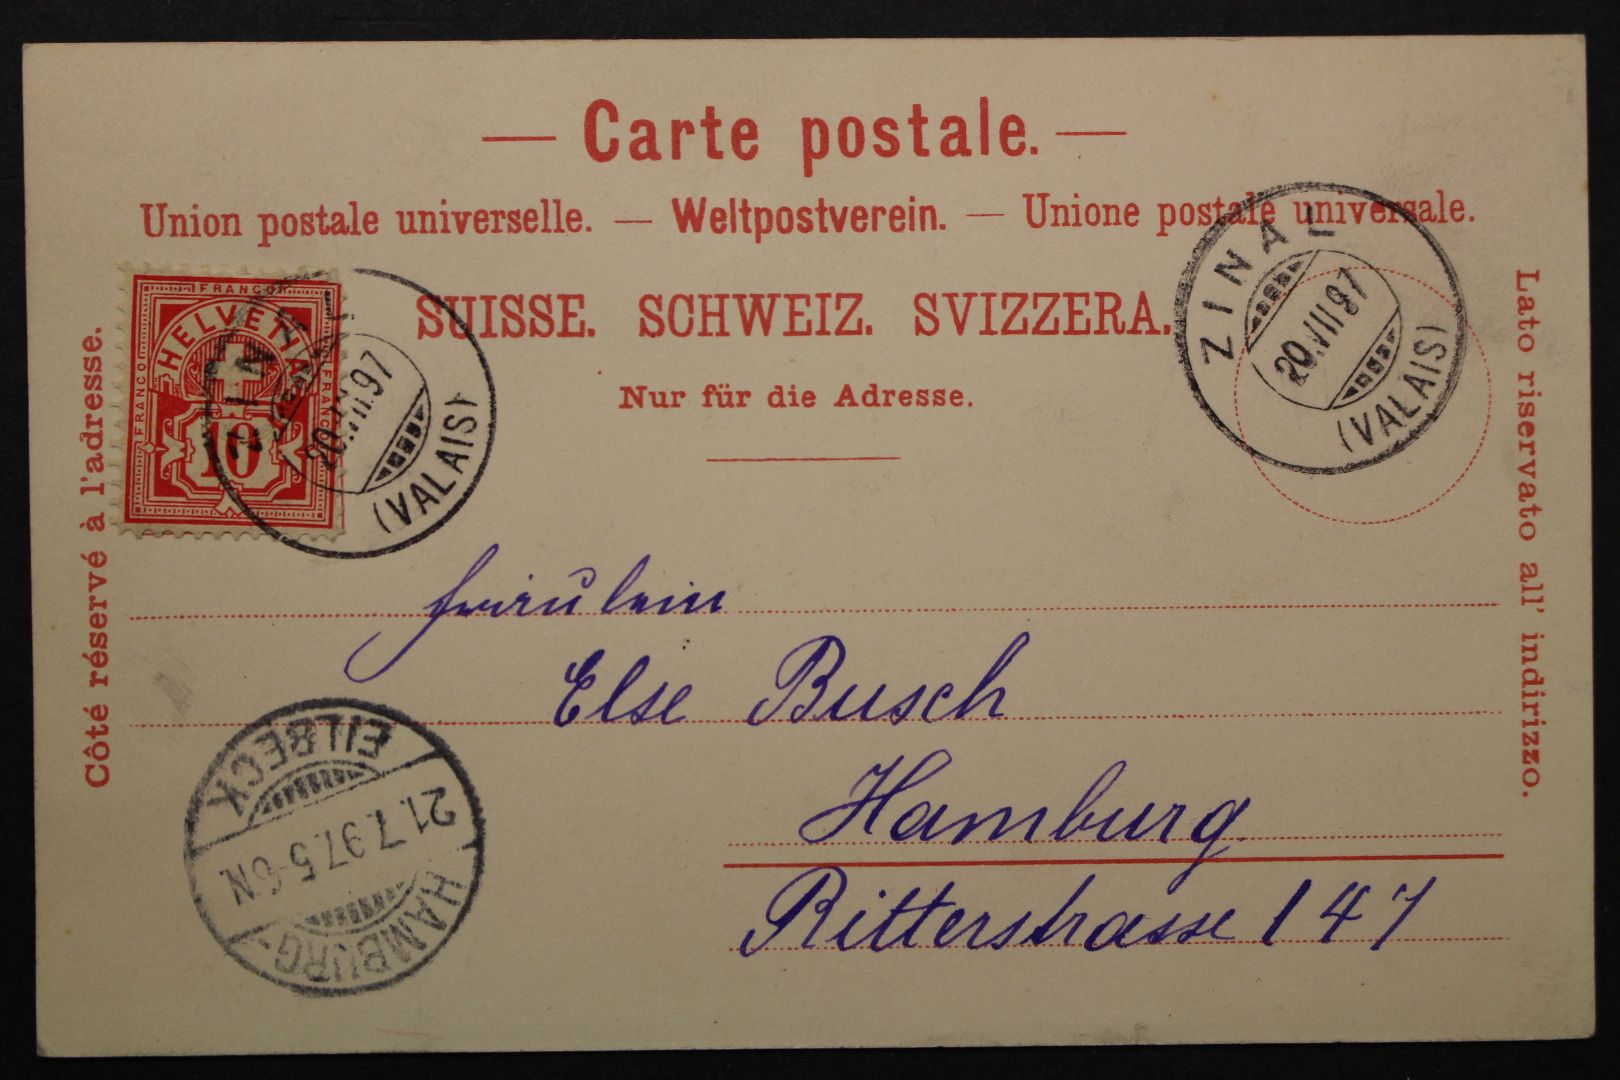 Carte postale.
Union postale universelle. — Weltpostverein. — Unione postale universale.
SUISSE. SCHWEIZ. SVIZZERA.
Nur für die Adresse.
Côté réservé à l'adresse.
Lato riservato all' indirizzo.
FRANCO
FRANCO
FRANCO
HELVETIA
10
ZINAL
20.VII.97
(VALAIS)
ZINAL
20.VII.97
(VALAIS)
Fräulein
Else Busch
Hamburg
Ritterstrasse 147
HAMBURG-
21.7.97.5-6N
EILBECK